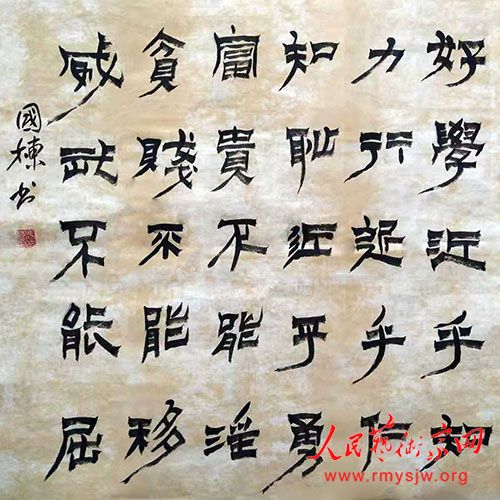 好學近乎知
力行近乎仁
知耻近乎勇
富貴不能淫
貧賤不能移
威武不能屈
國棟书
人民藝術家网
www.rmysjw.org